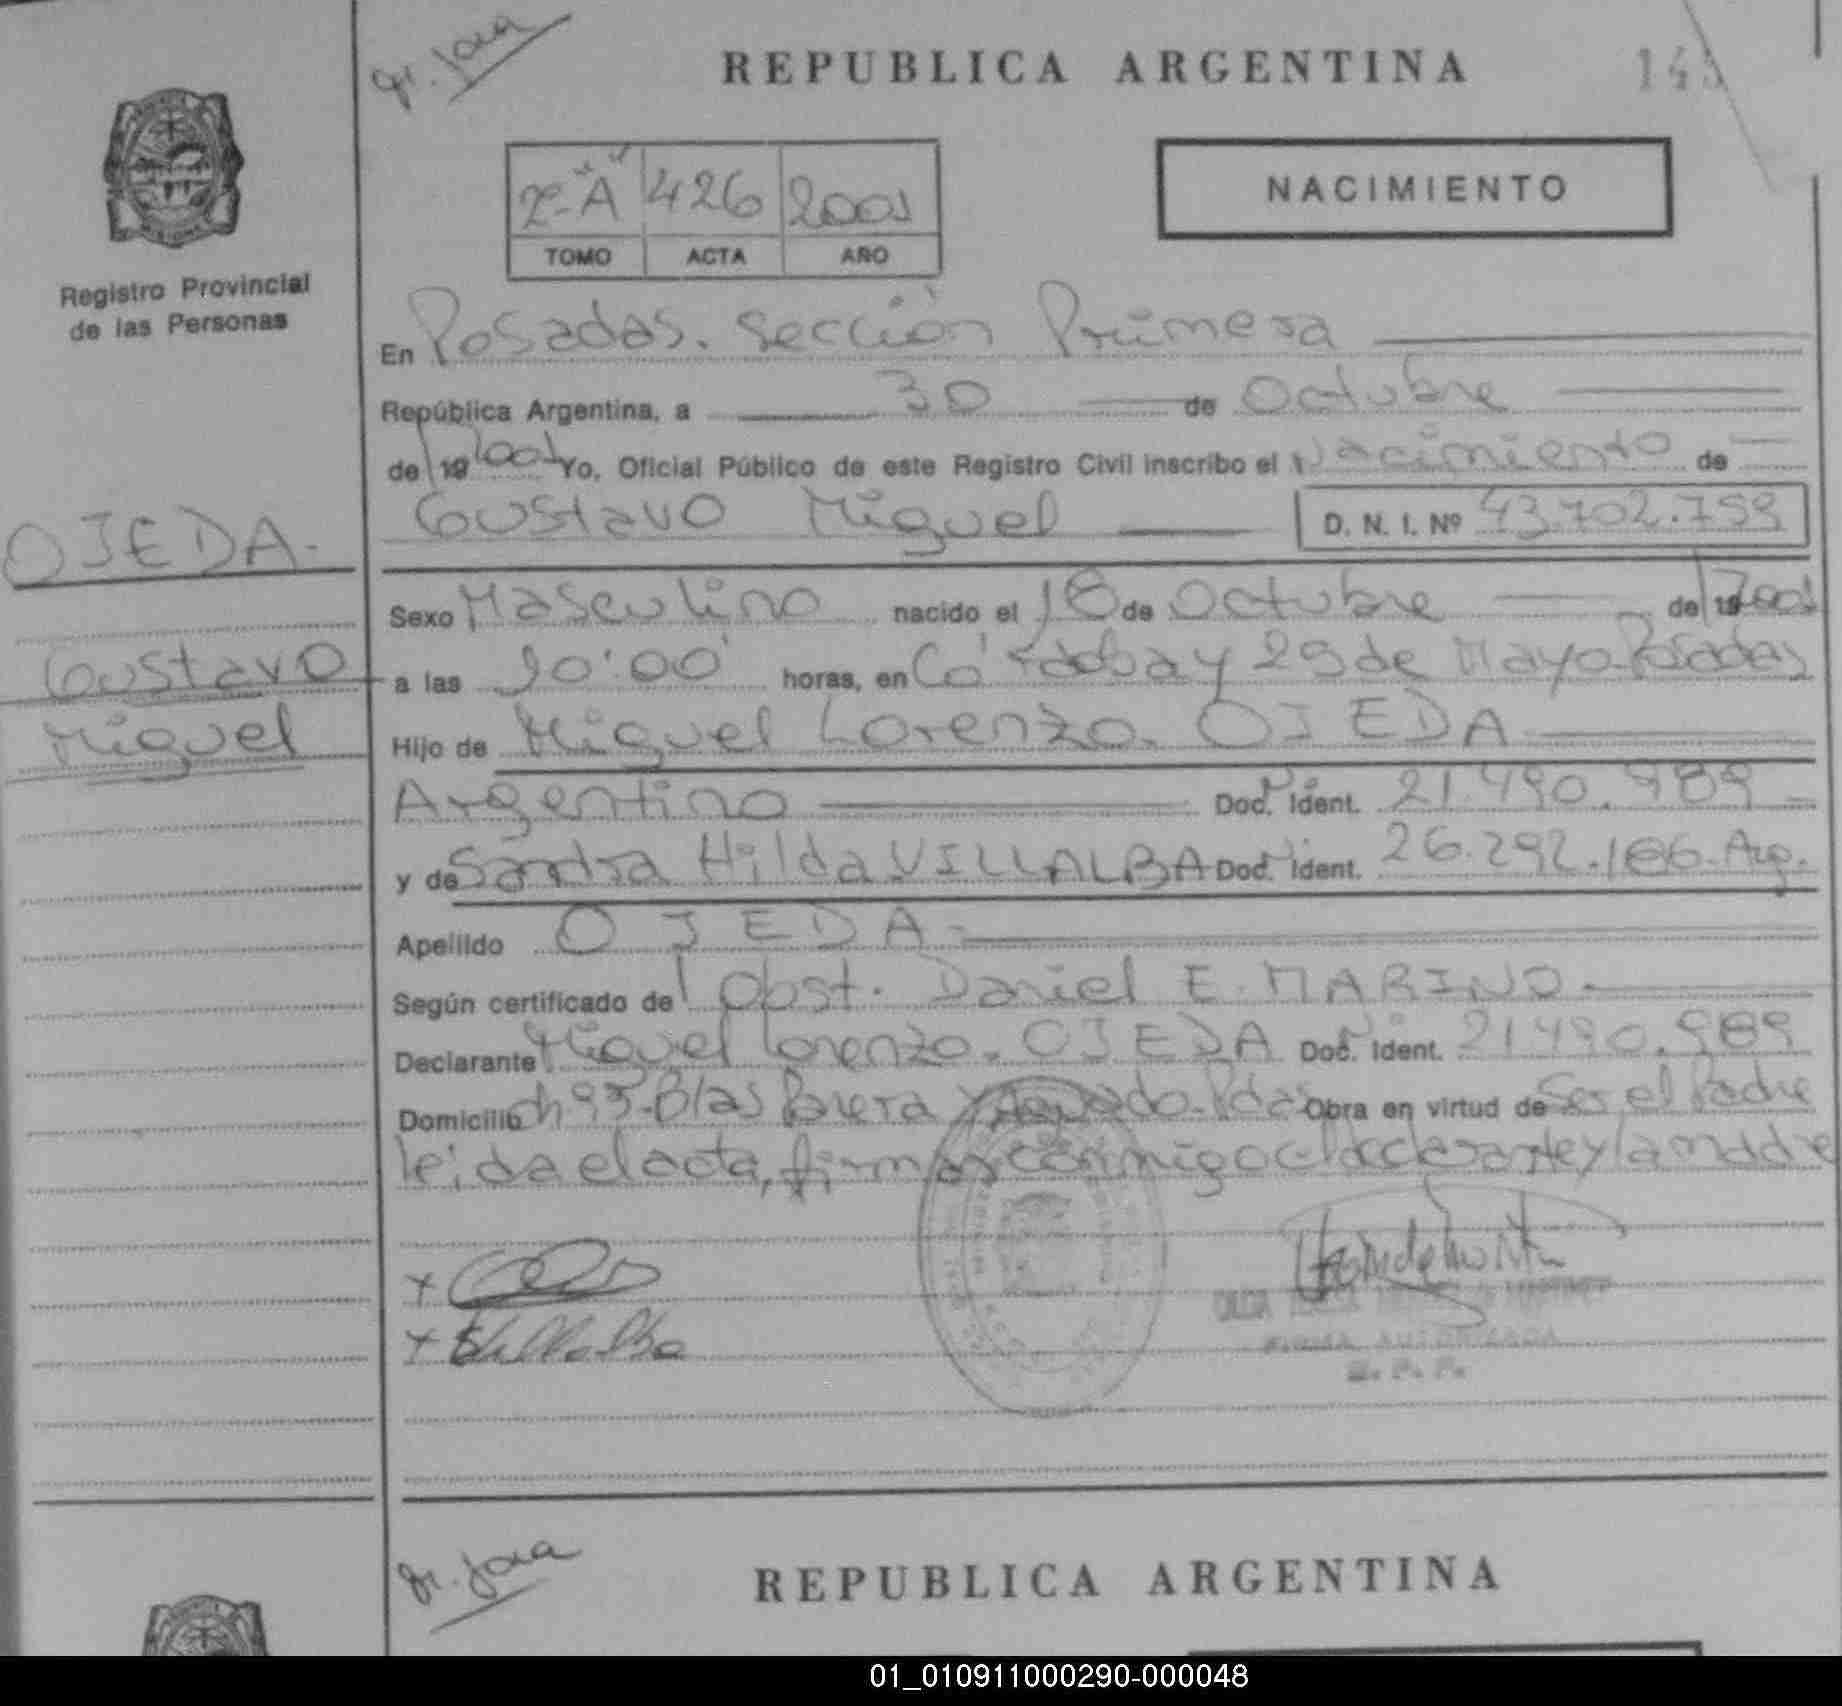 Gr. Jara
REPUBLICA ARGENTINA
Registro Provincial
de las Personas
2º "A" 426 2001
TOMO ACTA AÑO
NACIMIENTO
En Posadas. Sección Primera
República Argentina, a 30 de Octubre
de 19 2001 Yo, Oficial Público de este Registro Civil inscribo el Nacimiento de
Gustavo Miguel D. N. I. Nº 43.702.759
OJEDA.
Gustavo
Miguel
Sexo Masculino nacido el 18 de Octubre de 19 2001
a las horas, en Córdoba y 25 de Mayo Posadas
Hijo de Miguel Lorenzo. OJEDA
Argentino Doc. Ident. 21.490.989
y de Sandra Hilda VILLALBA Doc. Ident. 26.292.186. Arg.
Apellido OJEDA.
Según certificado de Obst. Daniel E. MARINO.
Declarante Miguel Lorenzo. OJEDA Doc. Ident. 21.490.989
Domicilio Ch 93. Blas Parera y Pdas Obra en virtud de Ser el Padre
leida el acta, firman conmigo el declarante y la madre
FIRMA AUTORIZADA
Gr. Jara
REPUBLICA ARGENTINA
01_010911000290-000048